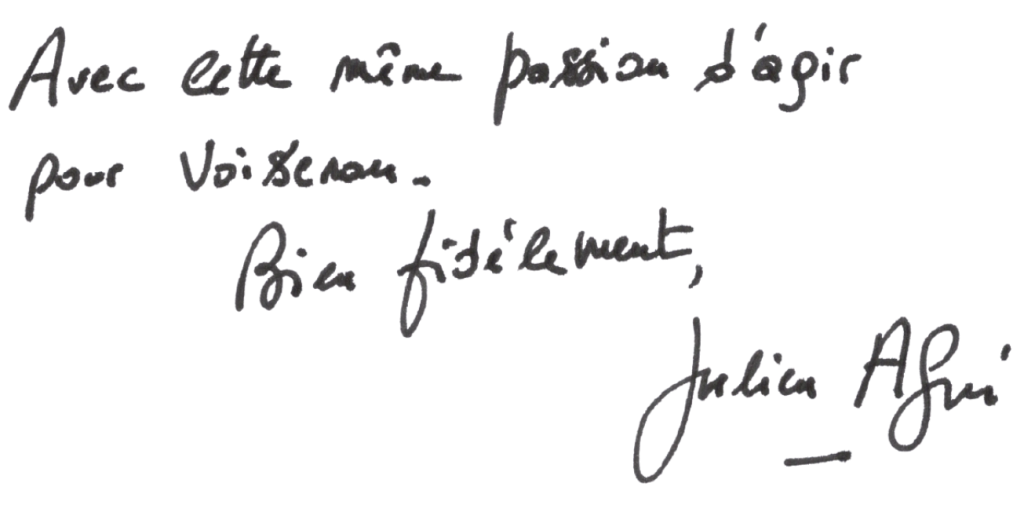 Avec cette même passion d'agir
pour Voisenon.
Bien fidèlement,
Julien Aguin